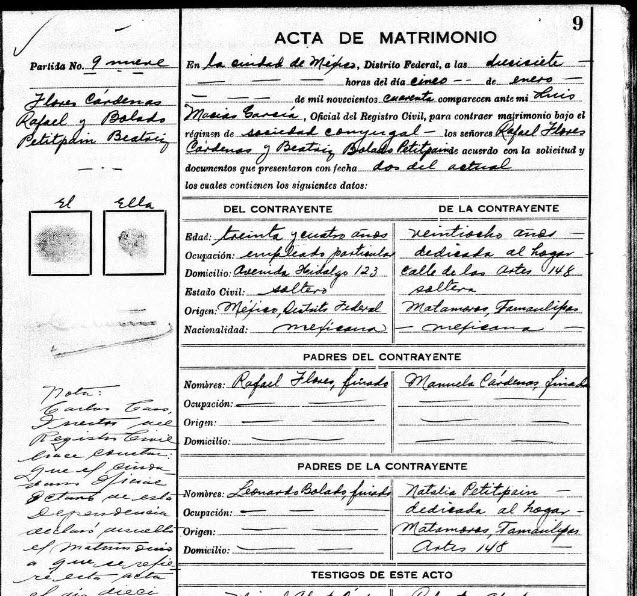 9
ACTA DE MATRIMONIO
Partida No. 9 nueve
Flores Cárdenas
Rafael y Bolado
Petitpein Beatriz
El Ella
En la ciudad de Méjico, Distrito Federal, a las diecisiete
horas del día cinco de enero
de mil novecientos cuarenta comparecen ante mí Luis
Macías García, Oficial del Registro Civil, para contraer matrimonio bajo el
régimen de sociedad conyugal los señores Rafael Flores
Cárdenas y Beatriz Bolado Petitpein de acuerdo con la solicitud y
documentos que presentaron con fecha dos del actual
los cuales contienen los siguientes datos:
DEL CONTRAYENTE DE LA CONTRAYENTE
Edad: treinta y cuatro años veintiocho años
Ocupación: empleado particular dedicada al hogar
Domicilio: Avenida Hidalgo 123 calle de las Artes 148
Estado Civil: soltero soltera
Origen: Méjico, Distrito Federal Matamoros, Tamaulipas
Nacionalidad: mejicana mejicana
PADRES DEL CONTRAYENTE
Nombres: Rafael Flores, finado Manuela Cárdenas, finada
Ocupación:
Origen:
Domicilio:
PADRES DE LA CONTRAYENTE
Nombres: Leonardo Bolado, finado Natalia Petitpein
Ocupación: dedicada al hogar
Origen: Matamoros, Tamaulipas
Domicilio: Artes 148
TESTIGOS DE ESTE ACTO
Nota:
Carlos
del
Registro Civil
hace constar:
que el
Oficina
de esta
Dependencia
declaró disuelto
el matrimonio
a que se refie-
re esta acta
el día